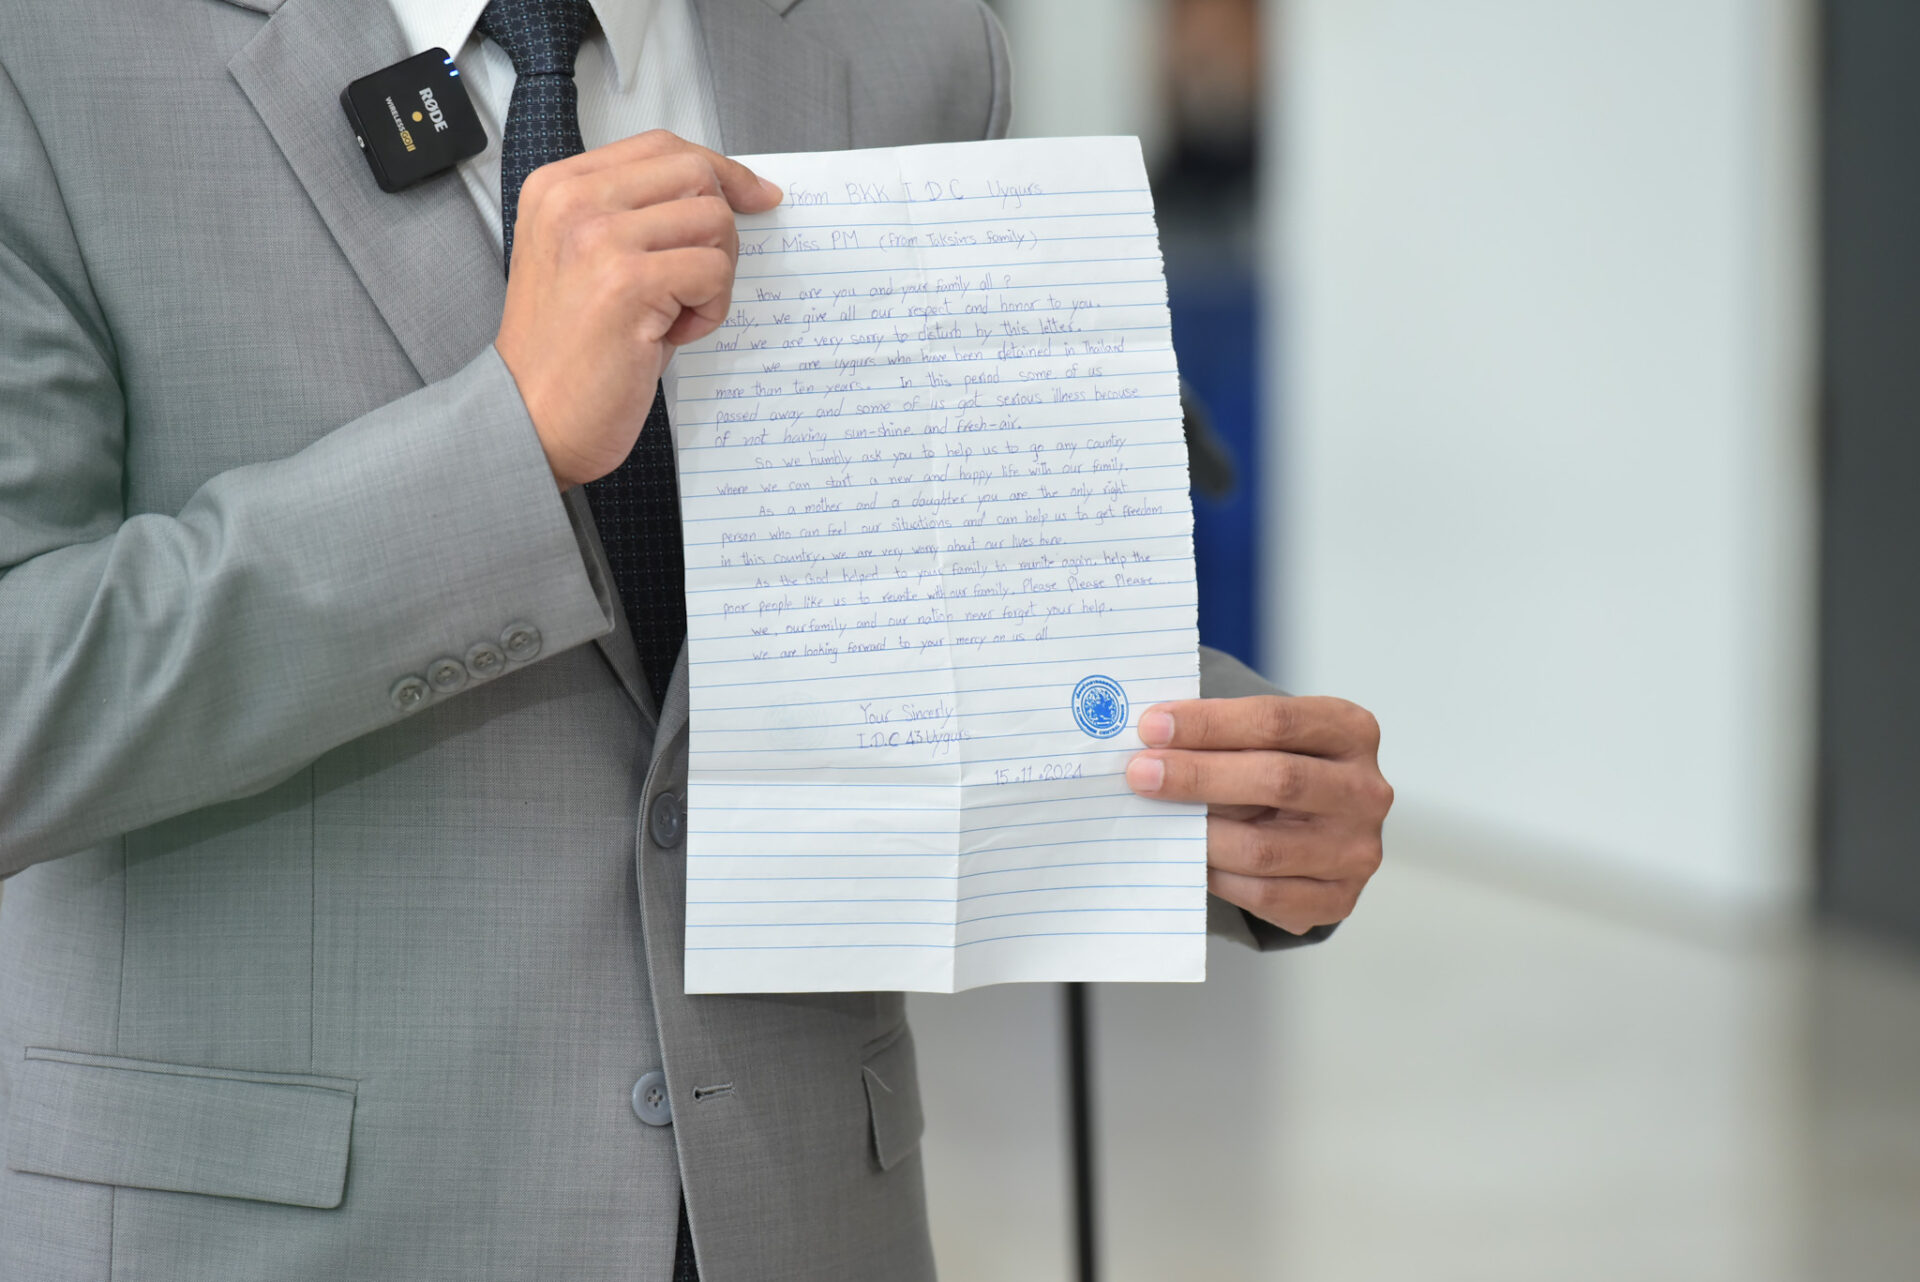 RØDE
WIRELESS GO II
from BKK I D C Uygurs
ear Miss PM (from Taksin's family)
How are you and your family all ?
rstly, we give all our respect and honor to you.
and we are very sorry to disturb by this letter.
we are Uygurs who have been detained in Thailand
more than ten years. In this period some of us
passed away and some of us got serious illness because
of not having sun-shine and fresh-air.
So we humbly ask you to help us to go any country
where we can start a new and happy life with our family.
As a mother and a daughter you are the only right
person who can feel our situations and can help us to get freedom
in this country, we are very worry about our lives here.
As the God helped to your family to reunite again, help the
poor people like us to reunite with our family. Please Please Please...
we, our family and our nation never forget your help.
we are looking forward to your mercy on us all.
Your Sincerly
I.D.C 43 Uygurs
15.11.2024